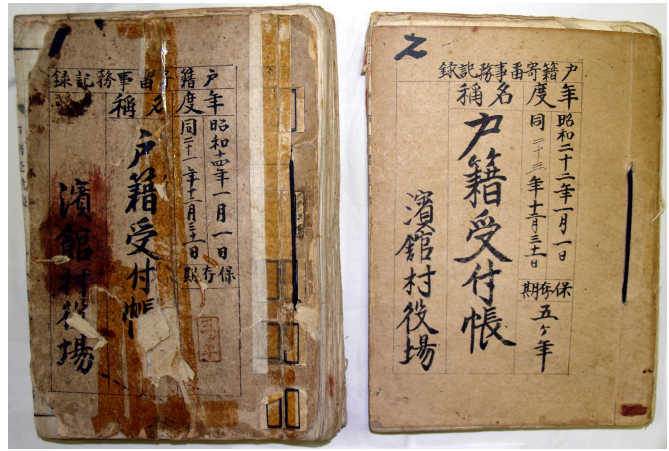 戸籍寄畄事務記録
年度
名稱
昭和十四年一月一日
同二十一年十二月三十一日
戸籍受付帳
保存期
濱館村役場
2
戸籍寄畄事務記録
年度
名稱
昭和二十二年一月一日
同二十三年十二月三十一日
戸籍受付帳
保存期
五ヶ年
濱館村役場